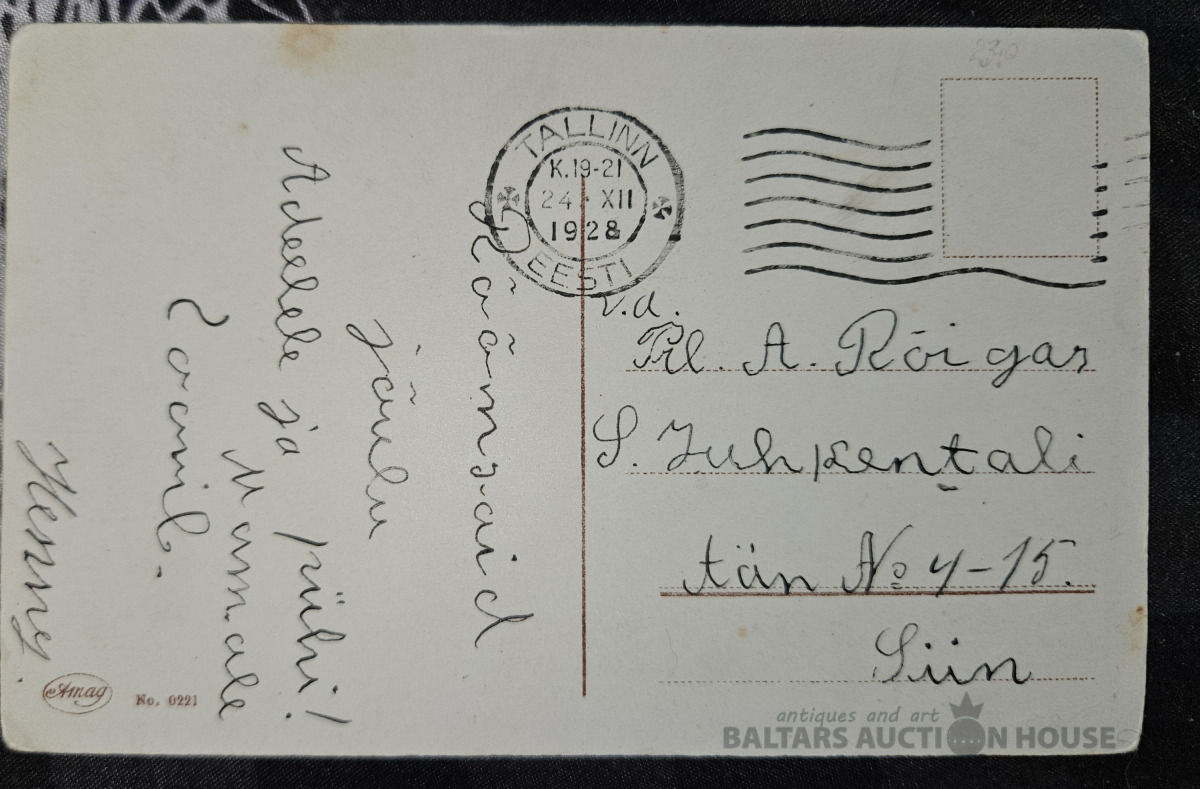 TALLINN
K.19-21
24 · XII
1928
EESTI
Rõõmsaid
jõulu
pühi!
Adeelele ja
Mammale
Loomil.
Henny.
v.a.
Prl. A. Rõigas
S. Juhkentali
tän № 4-15.
Siin
Amag
No. 0221
antiques and art
BALTARS AUCTION HOUSE